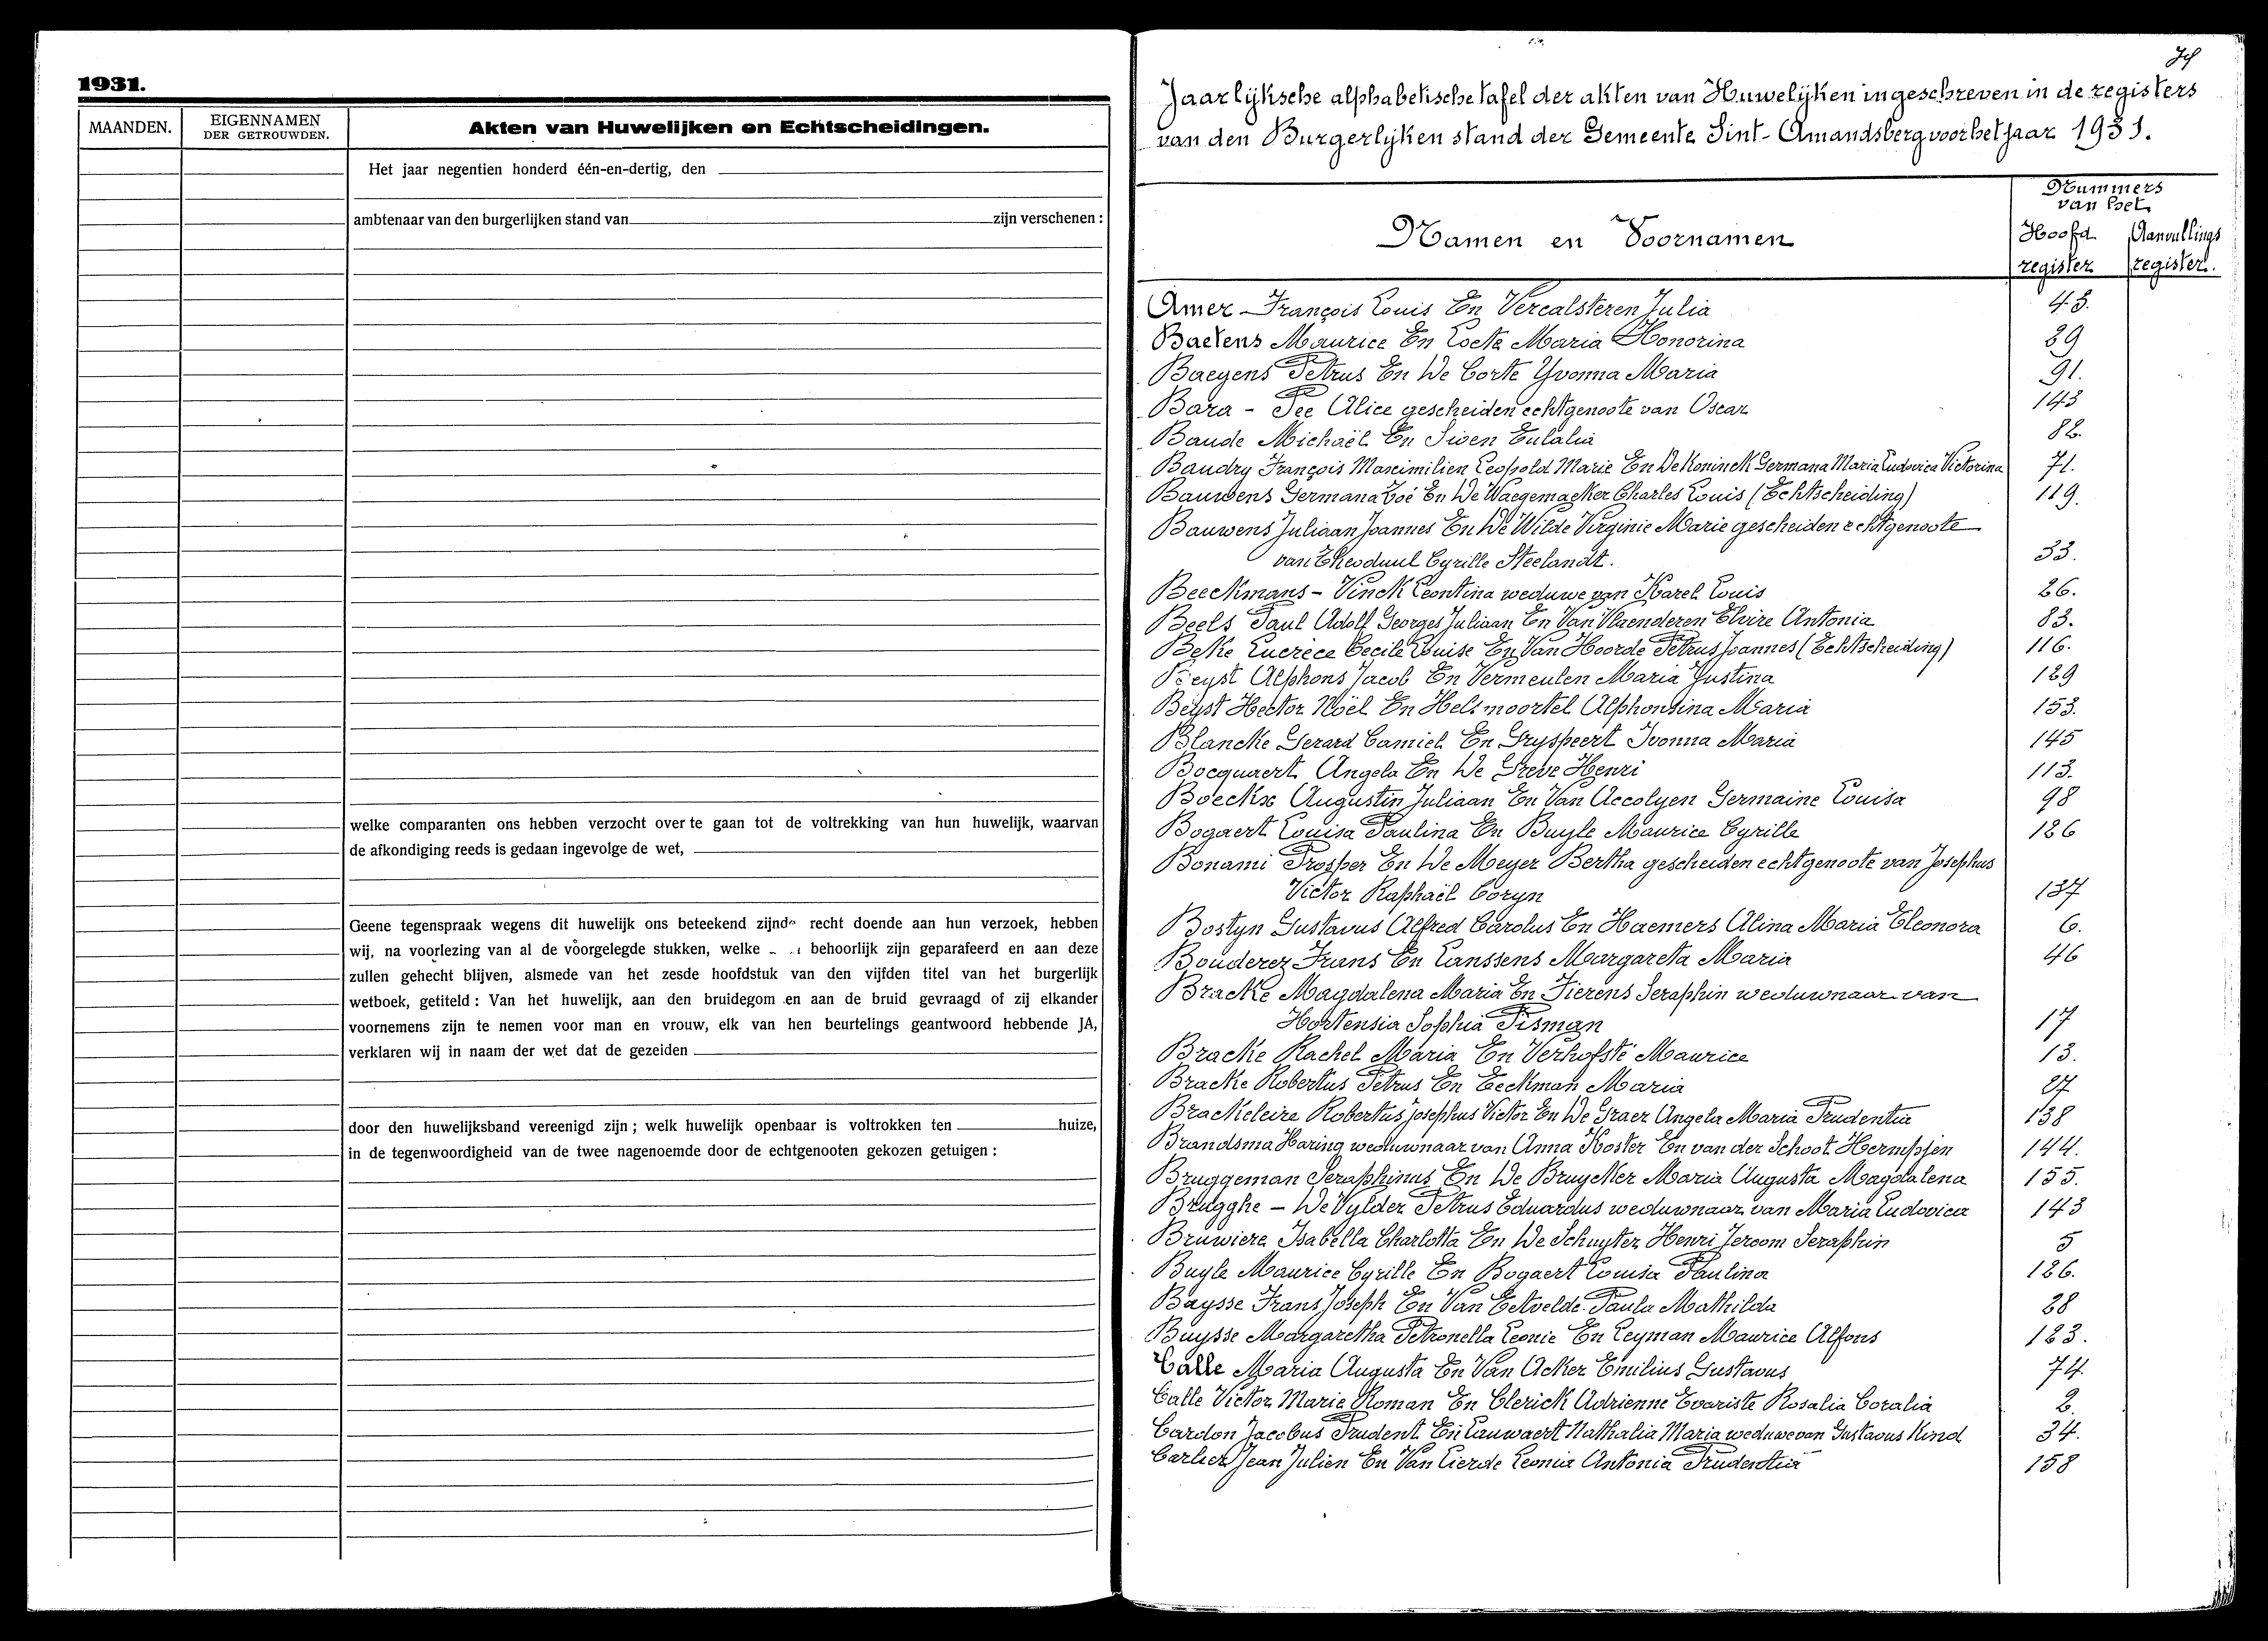 1931.
MAANDEN.
EIGENNAMEN
DER GETROUWDEN.
Akten van Huwelijken en Echtscheidingen.
Het jaar negentien honderd één-en-dertig, den
ambtenaar van den burgerlijken stand van zijn verschenen :
welke comparanten ons hebben verzocht over te gaan tot de voltrekking van hun huwelijk, waarvan
de afkondiging reeds is gedaan ingevolge de wet,
Geene tegenspraak wegens dit huwelijk ons beteekend zijnde recht doende aan hun verzoek, hebben
wij, na voorlezing van al de voorgelegde stukken, welke behoorlijk zijn geparafeerd en aan deze
zullen gehecht blijven, alsmede van het zesde hoofdstuk van den vijfden titel van het burgerlijk
wetboek, getiteld : Van het huwelijk, aan den bruidegom en aan de bruid gevraagd of zij elkander
voornemens zijn te nemen voor man en vrouw, elk van hen beurtelings geantwoord hebbende JA,
verklaren wij in naam der wet dat de gezeiden
door den huwelijksband vereenigd zijn ; welk huwelijk openbaar is voltrokken ten huize,
in de tegenwoordigheid van de twee nagenoemde door de echtgenooten gekozen getuigen :
Jaarlijksche alphabetische tafel der akten van Huwelijken ingeschreven in de registers
van den Burgerlijken stand der Gemeente Sint-Amandsberg voor het jaar 1931.
Namen en Voornamen
Nummers
van het
Hoofd Aanvullings
register register.
Amer François Louis En Vercalsteren Julia 45.
Baetens Maurice En Maria Honorina 89
Baeyens Petrus En De Corte Yvonna Maria 91.
Bara - Pee Alice gescheiden echtgenoote van Oscar 143
Baude Michaël En Siven Eulalia 82.
Baudry François Maximilien Leopold Marie En De Koninck Germana Maria Ludovica Victorina 71.
Bauwens Germana Zoé En De Waegemacker Charles Louis (Echtscheiding) 119.
Bauwens Juliaan Joannes En De Wilde Virginie Marie gescheiden echtgenoote
van Theoduul Cyrille Steelandt. 33.
Beeckmans - Vinck Leontina weduwe van Karel Louis 26.
Beels Paul Adolf Georges Juliaan En Van Vlaenderen Elvire Antonia 83.
Beke Lucrèce Cecile Louise En Van Hoorde Petrus Joannes (Echtscheiding) 116.
Beyst Alphons Jacob En Vermeulen Maria Justina 129
Beyst Hector Noël En Helsmoortel Alphonsina Maria 153.
Blancke Gerard Camiel En Gryspeert Ivonna Maria 145
Bocquaert Angela En De Greve Henri 113.
Boeckx Augustin Juliaan En Van Accolyen Germaine Louisa 98
Bogaert Louisa Paulina En Buyle Maurice Cyrille 126
Bonami Prosper En De Meyer Bertha gescheiden echtgenoote van Josephus
Victor Raphaël Coryn 137
Bostyn Gustavus Alfred Carolus En Haemers Alina Maria Eleonora 6.
Bouderez Frans En Lanssens Margareta Maria 46
Bracke Magdalena Maria En Fierens Seraphin weduwnaar van
Hortensia Sophia Pisman 17
Bracke Rachel Maria En Verhofsté Maurice 13.
Bracke Robertus Petrus En Eeckman Maria 27
Brackeleire Robertus Josephus Victor En De Graer Angela Maria Prudentia 138
Brandsma Haring weduwnaar van Anna Koster En van der Schoot Hermpjen 144.
Bruggeman Seraphinus En De Bruycker Maria Augusta Magdalena 155.
Brugghe - De Vylder Petrus Eduardus weduwnaar van Maria Ludovica 143
Bruwiere Isabella Charlotta En De Schuyter Henri Jeroom Seraphin 5
Buyle Maurice Cyrille En Bogaert Louisa Paulina 126.
Buysse Frans Joseph En Van Eetvelde Paula Mathilda 28
Buysse Margaretha Petronella Leonie En Leyman Maurice Alfons 123.
Calle Maria Augusta En Van Acker Emilius Gustavus 74.
Calle Victor Marie Roman En Clerick Adrienne Evariste Rosalia Coralia 2.
Cardon Jacobus Prudent En Lauwaert Nathalia Maria weduwe van Gustavus Kind 34.
Carlier Jean Julien En Van Lierde Leonia Antonia Prudentia 158